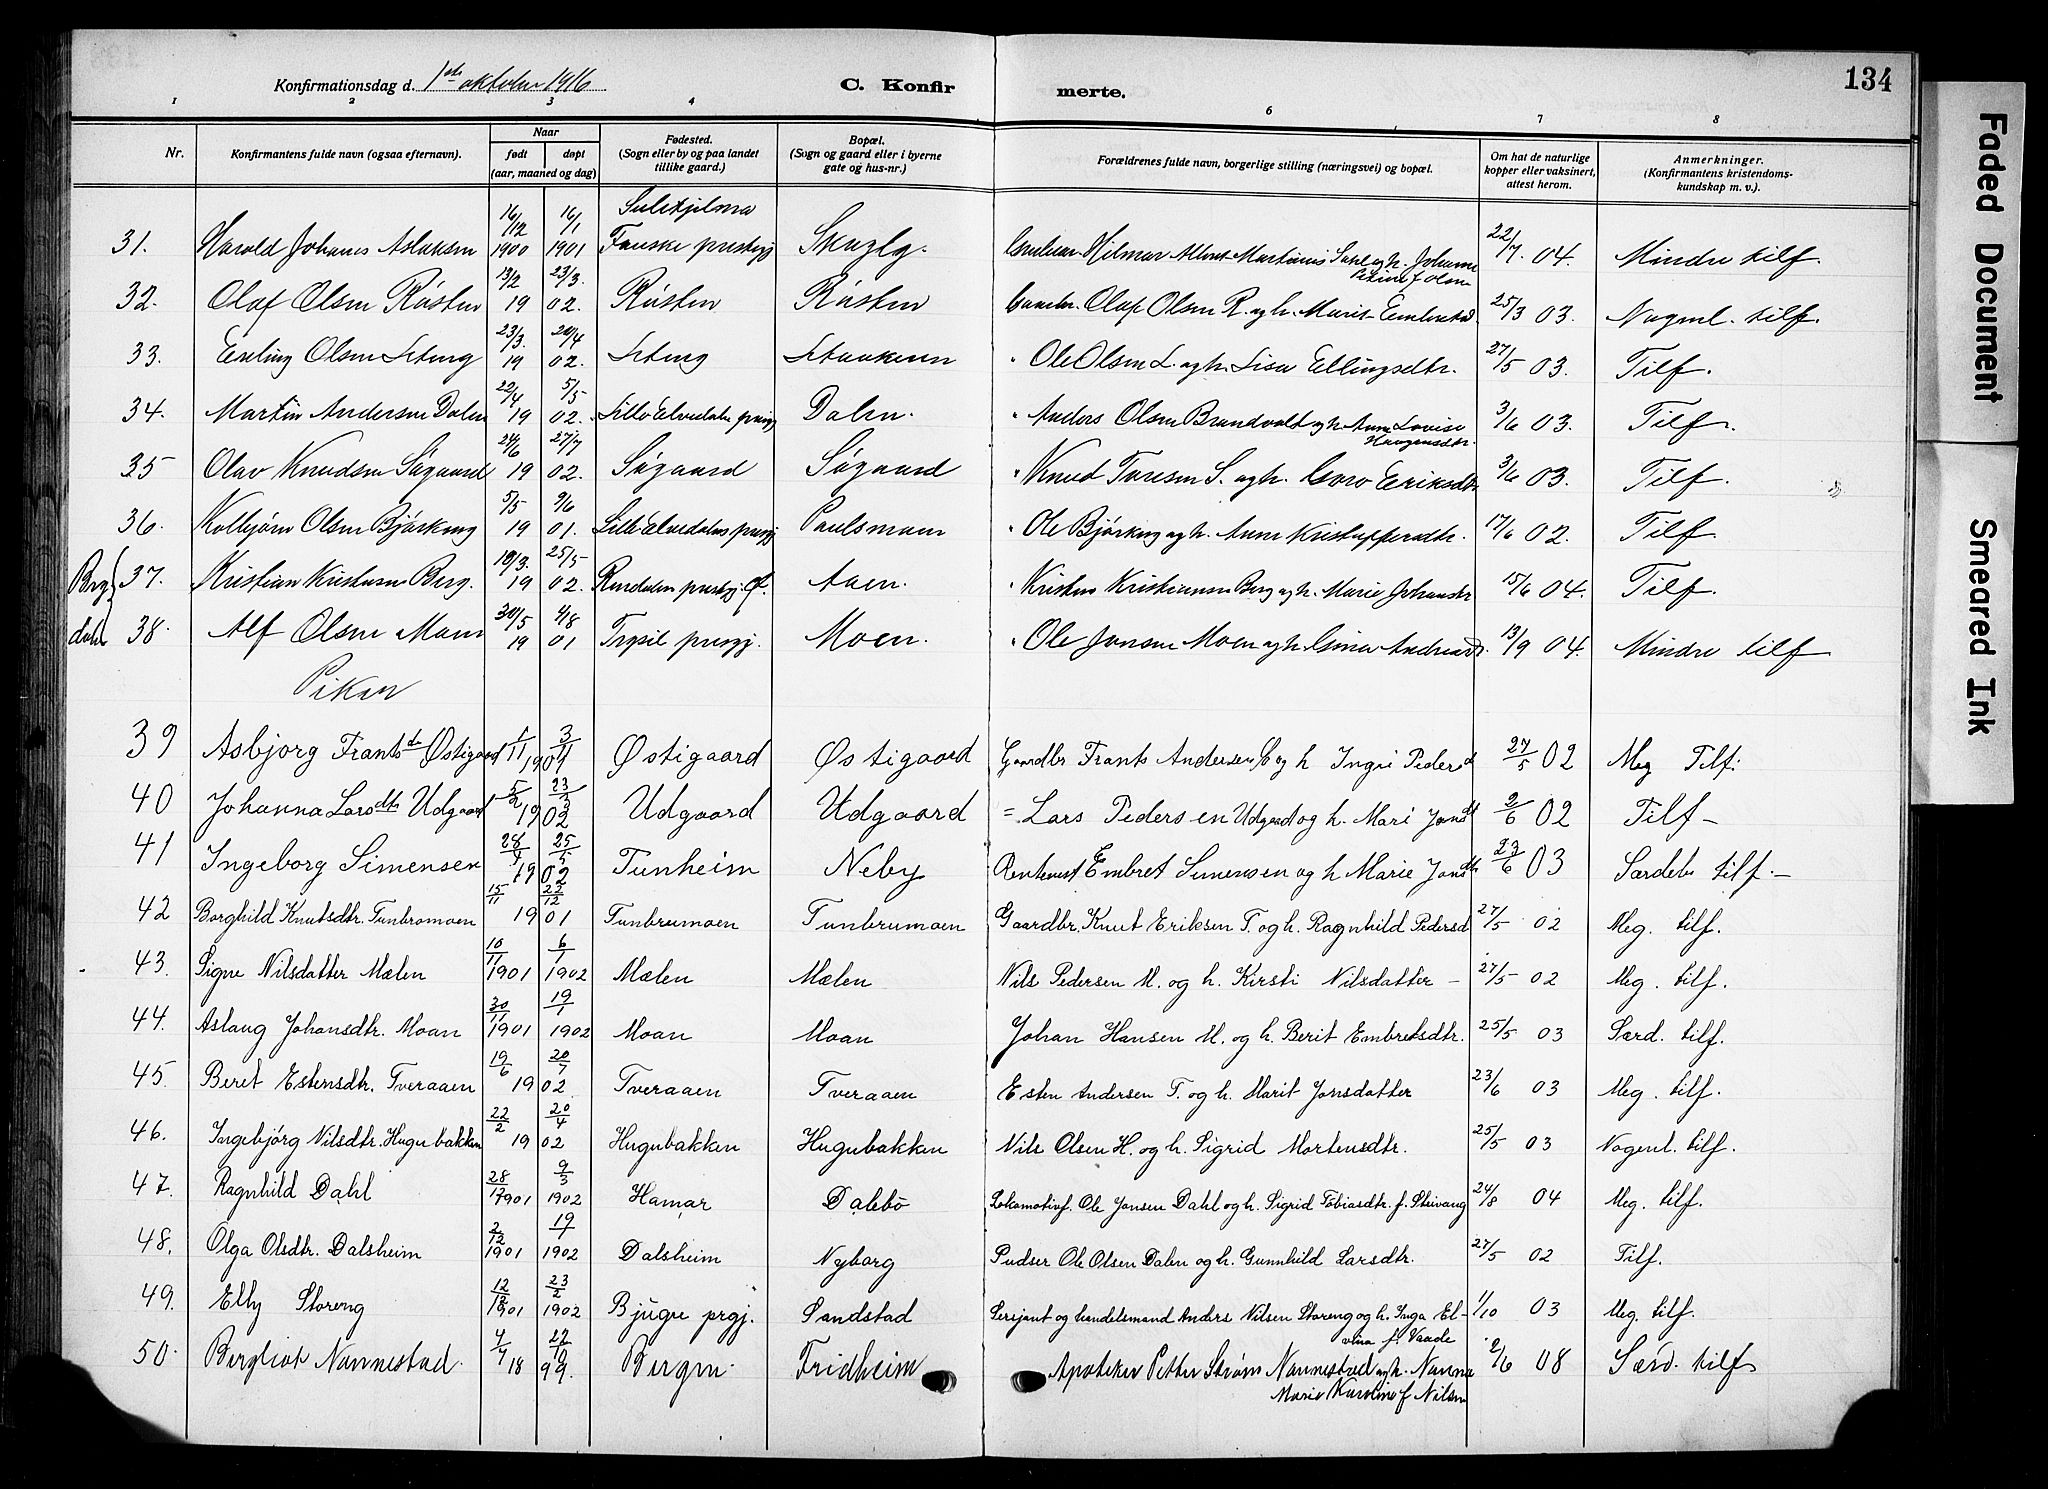 134
Konfirmationsdag d. 1ste oktober 1916
C. Konfir merte.
1 2 3 4 6 7 8
Nr. Konfirmantens fulde navn (ogsaa efternavn). Naar født døpt (aar, maaned og dag) Fødested. (Sogn eller by og paa landet tillike gaard.) Bopæl. (Sogn og gaard eller i byerne gate og hus-nr.) Forældrenes fulde navn, borgerlige stilling (næringsvei) og bopæl. Om hat de naturlige kopper eller vaksinert, attest herom. Anmerkninger. (Konfirmantens kristendoms-kundskap m. v.).
31. Harald Johanes Aslaksen 16/12 1900 16/1 1901 Sulitjelma Fauske prestegj. Hilmar Albert Martinius og h. Johanne f Olsen 22/7 04. Mindre tilf.
32. Olaf Olsen Røsten 13/2 19 23/3 02. Røsten Røsten Olaf Olsen R. og h. Marit Embretsd. 25/3 03. Nogenl. tilf.
33. Erling Olsen Lteng 23/3 19 20/4 02. Ole Olsen L. og h. Lisa Ellingsdtr. 27/5 03. Tilf.
34. Martin Andersen Dalen 22/4 19 5/5 02. Lille Elvedalen prgj Dalen. " Anders Olsen Brandvold og h. Anne Lovise Haagensdtr. 3/6 03. Tilf.
35 Olav Knudsen Søgaard 24/6 19 27/7 02. Søgaard Søgaard " Knud Toresen S. og h. Goro Eriksdtr 3/6 03. Tilf.
36. Kolbjørn Olsen Bjørkeng 5/5 19 9/6 01. Lille Elvedalens presgj Paulsmoen " Ole Bjørkeng og h. Anne Kristoffersdtr. 17/6 02. Tilf.
37. Kristian Kristensen Berg. 19/3. 19 25/5 02. Rendalen prestgj. Aaen. " Kristen Kristiansen Berg og h. Marie Johansdtr 15/6 04. Tilf.
38. Alf Olsen Moen 30/5 19 4/8 01 Trysil presgj. Moen. " Ole Jonsen Moen og h. Gina Andreasd. 13/9 04. Mindre tilf
Piker
39 Asbjørg Frantsdtr Østigaard 1/11 3/11 1901 Østigaard Østigaard Gaardbr Frants Andersen Ø og h Ingri Pedersd 27/5 02 Meg Tilf:
40 Johanna Larsdtr Udgaard 5/2 19 23/3 02 Udgaard Udgaard = Lars Pedersen Udgaard og h. Mari Jonsdt 2/6 02 Tilf –
41 Ingeborg Simensen 28/4 19 25/5 02 Tunheim Neby Embret Simensen og h Marie Jonsdtr 23/6 03 Særdeles tilf. –
42 Borghild Knutsdtr. Tunbromoen 15/11 19 22/12 01 Tunbrumoen Tunbrumoen Gaardbr. Knut Eriksen T. og h. Ragnhild Pedersd 27/5 02 Meg. tilf.
43. Signe Nilsdatter Mælen 10/11 1901 6/1 1902 Mælen Mælen Nils Pedersen M. og h. Kirsti Nilsdatter – 27/5 02 Meg. tilf.
44. Aslaug Johansdtr. Moan 30/11 1901 19/1 1902 Moan Moan Johan Hansen M. og h. Berit Embretsdtr. 25/5 03 Særd. tilf.
45. Beret Estensdtr. Tveraaen 19/6 19 20/7 02 Tveraaen Tveraaen Esten Andersen T. og h. Marit Jonsdatter 23/6 03 Meg. tilf.
46. Ingebjørg Nilsdtr. Hugubakken 22/2 19 20/4 02 Hugubakken Hugubakken Nils Olsen H. og h. Sigrid Mortensdtr. 25/5 03 Nogenl. tilf.
47. Ragnhild Dahl 28/12 1901 9/3 1902 Hamar Dalebo Lokomotivf. Ole Jonsen Dahl og h. Sigrid Tobiasdtr. f. Steivang 24/8 04 Meg. tilf.
48. Olga Olsdtr. Dalsheim 2/12 1901 19/1 1902 Dalsheim Nyborg Pudser Ole Olsen Dalen og h. Gunnhild Larsdtr. 27/5 02 Tilf.
49. Elly Storeng 12/12 1901 23/2 1902 Bjugn prgj. Sandstad Sersjant og handelsmand Anders Nilsen Storeng og h. Inga Elvina f. Vaade 1/10 03 Meg. tilf.
50. Bergliot Nannestad. 4/7 18 22/10 99. Bergen. Fridheim Apoteker Petter Strøm Nannestad og h. Nanna Marie Karoline f Nilsen 2/6 08 Særd. tilf
Faded Document
Smeared Ink